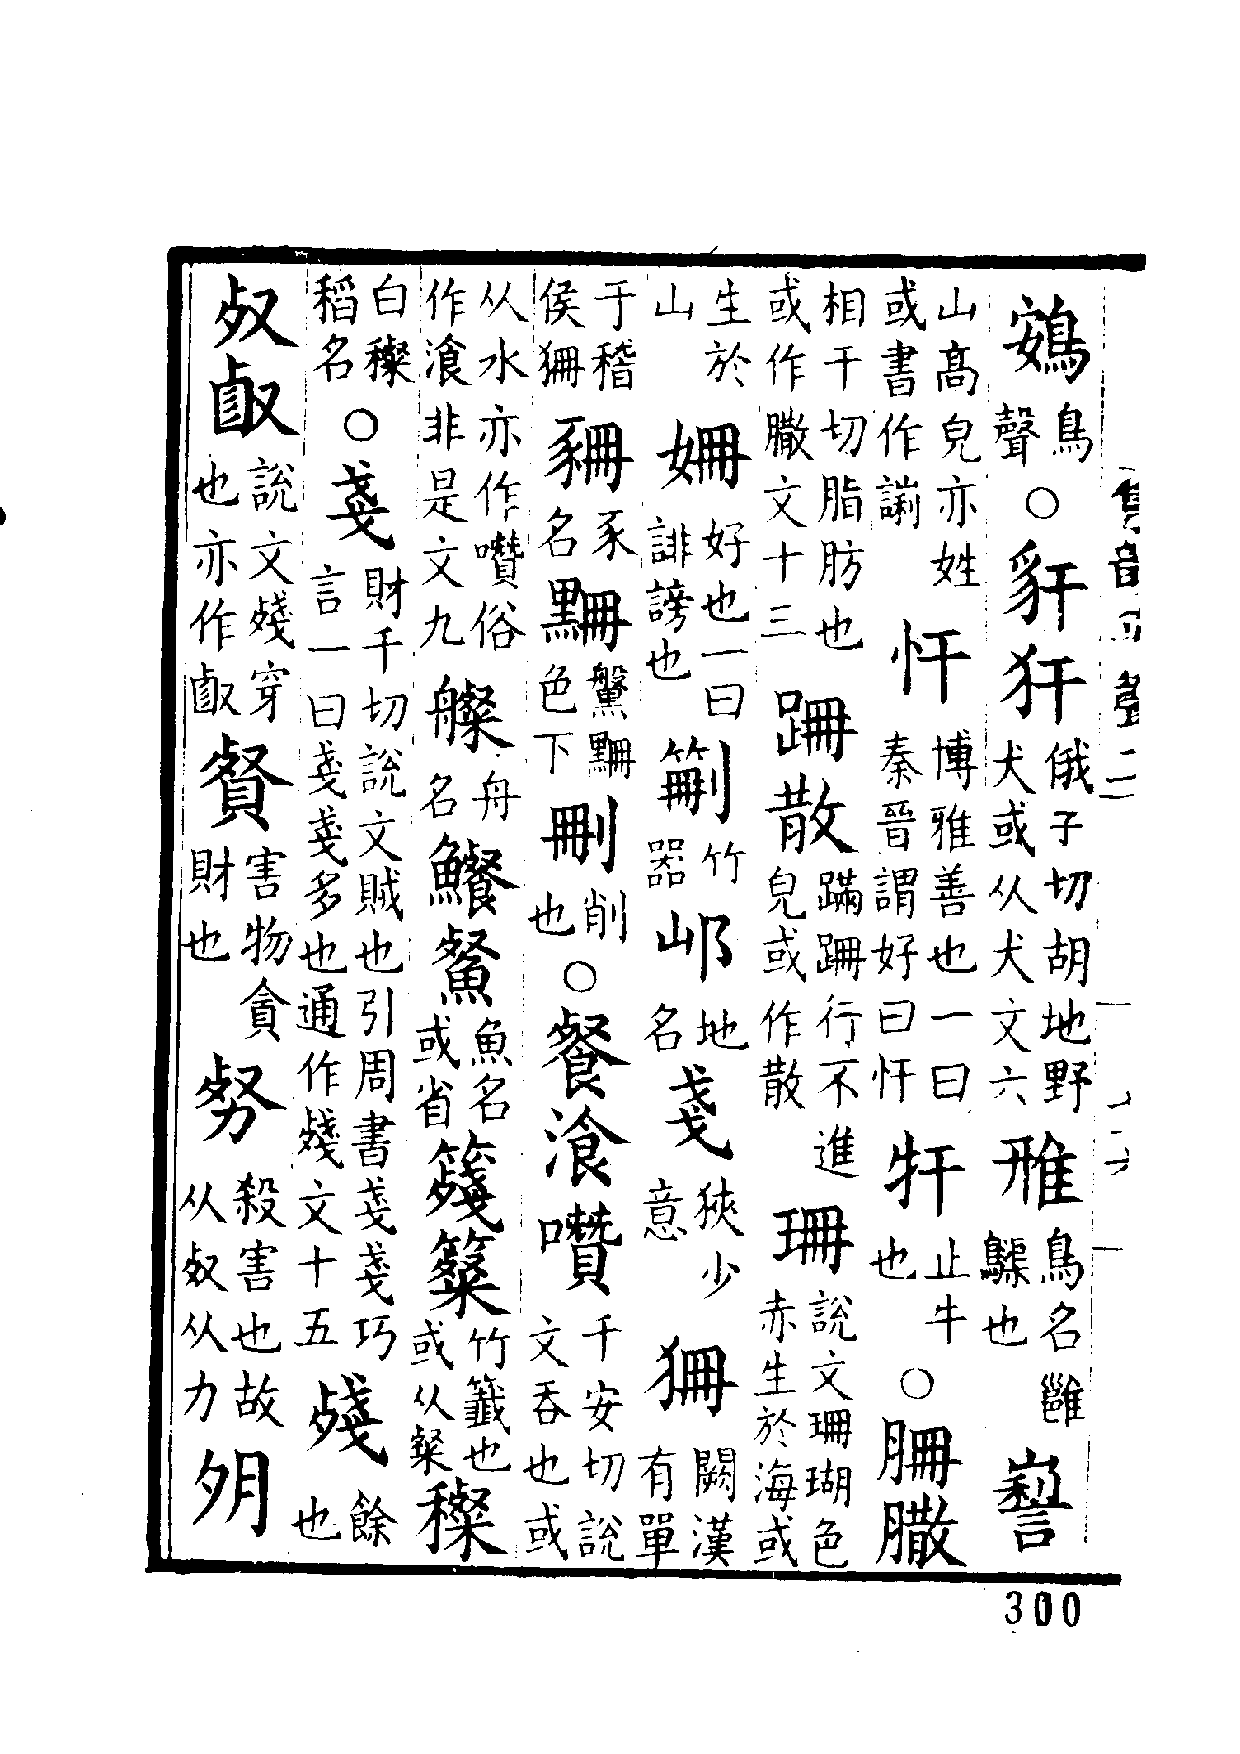 鴳鳥聲○豻犴俄子切胡地野犬或从犬文六雃鳥名雝也
山髙皃亦姓或書作忓博雅善也一曰秦晉謂好曰忓止牛也○
相干切脂肪也或作文十三跚散蹣跚行不進皃或作散珊說文珊瑚色赤生於海或
生於山姍好也一曰誹謗也竹器邖地名戔狹少意狦闕漢有單
于稽侯狦豕名色下刪削也○餐湌囋千安切說文吞也或
从水亦作囋俗作湌非是文九舟名魚名或省竹籤也或从粲
白稻名○戔財千切說文賊也引周書戔戔巧言一曰戔戔多也通作殘文十五殘餘也
𣦼說文殘穿也亦作害物貪財也殺害也故从𣦼从力
集韻平聲二
300